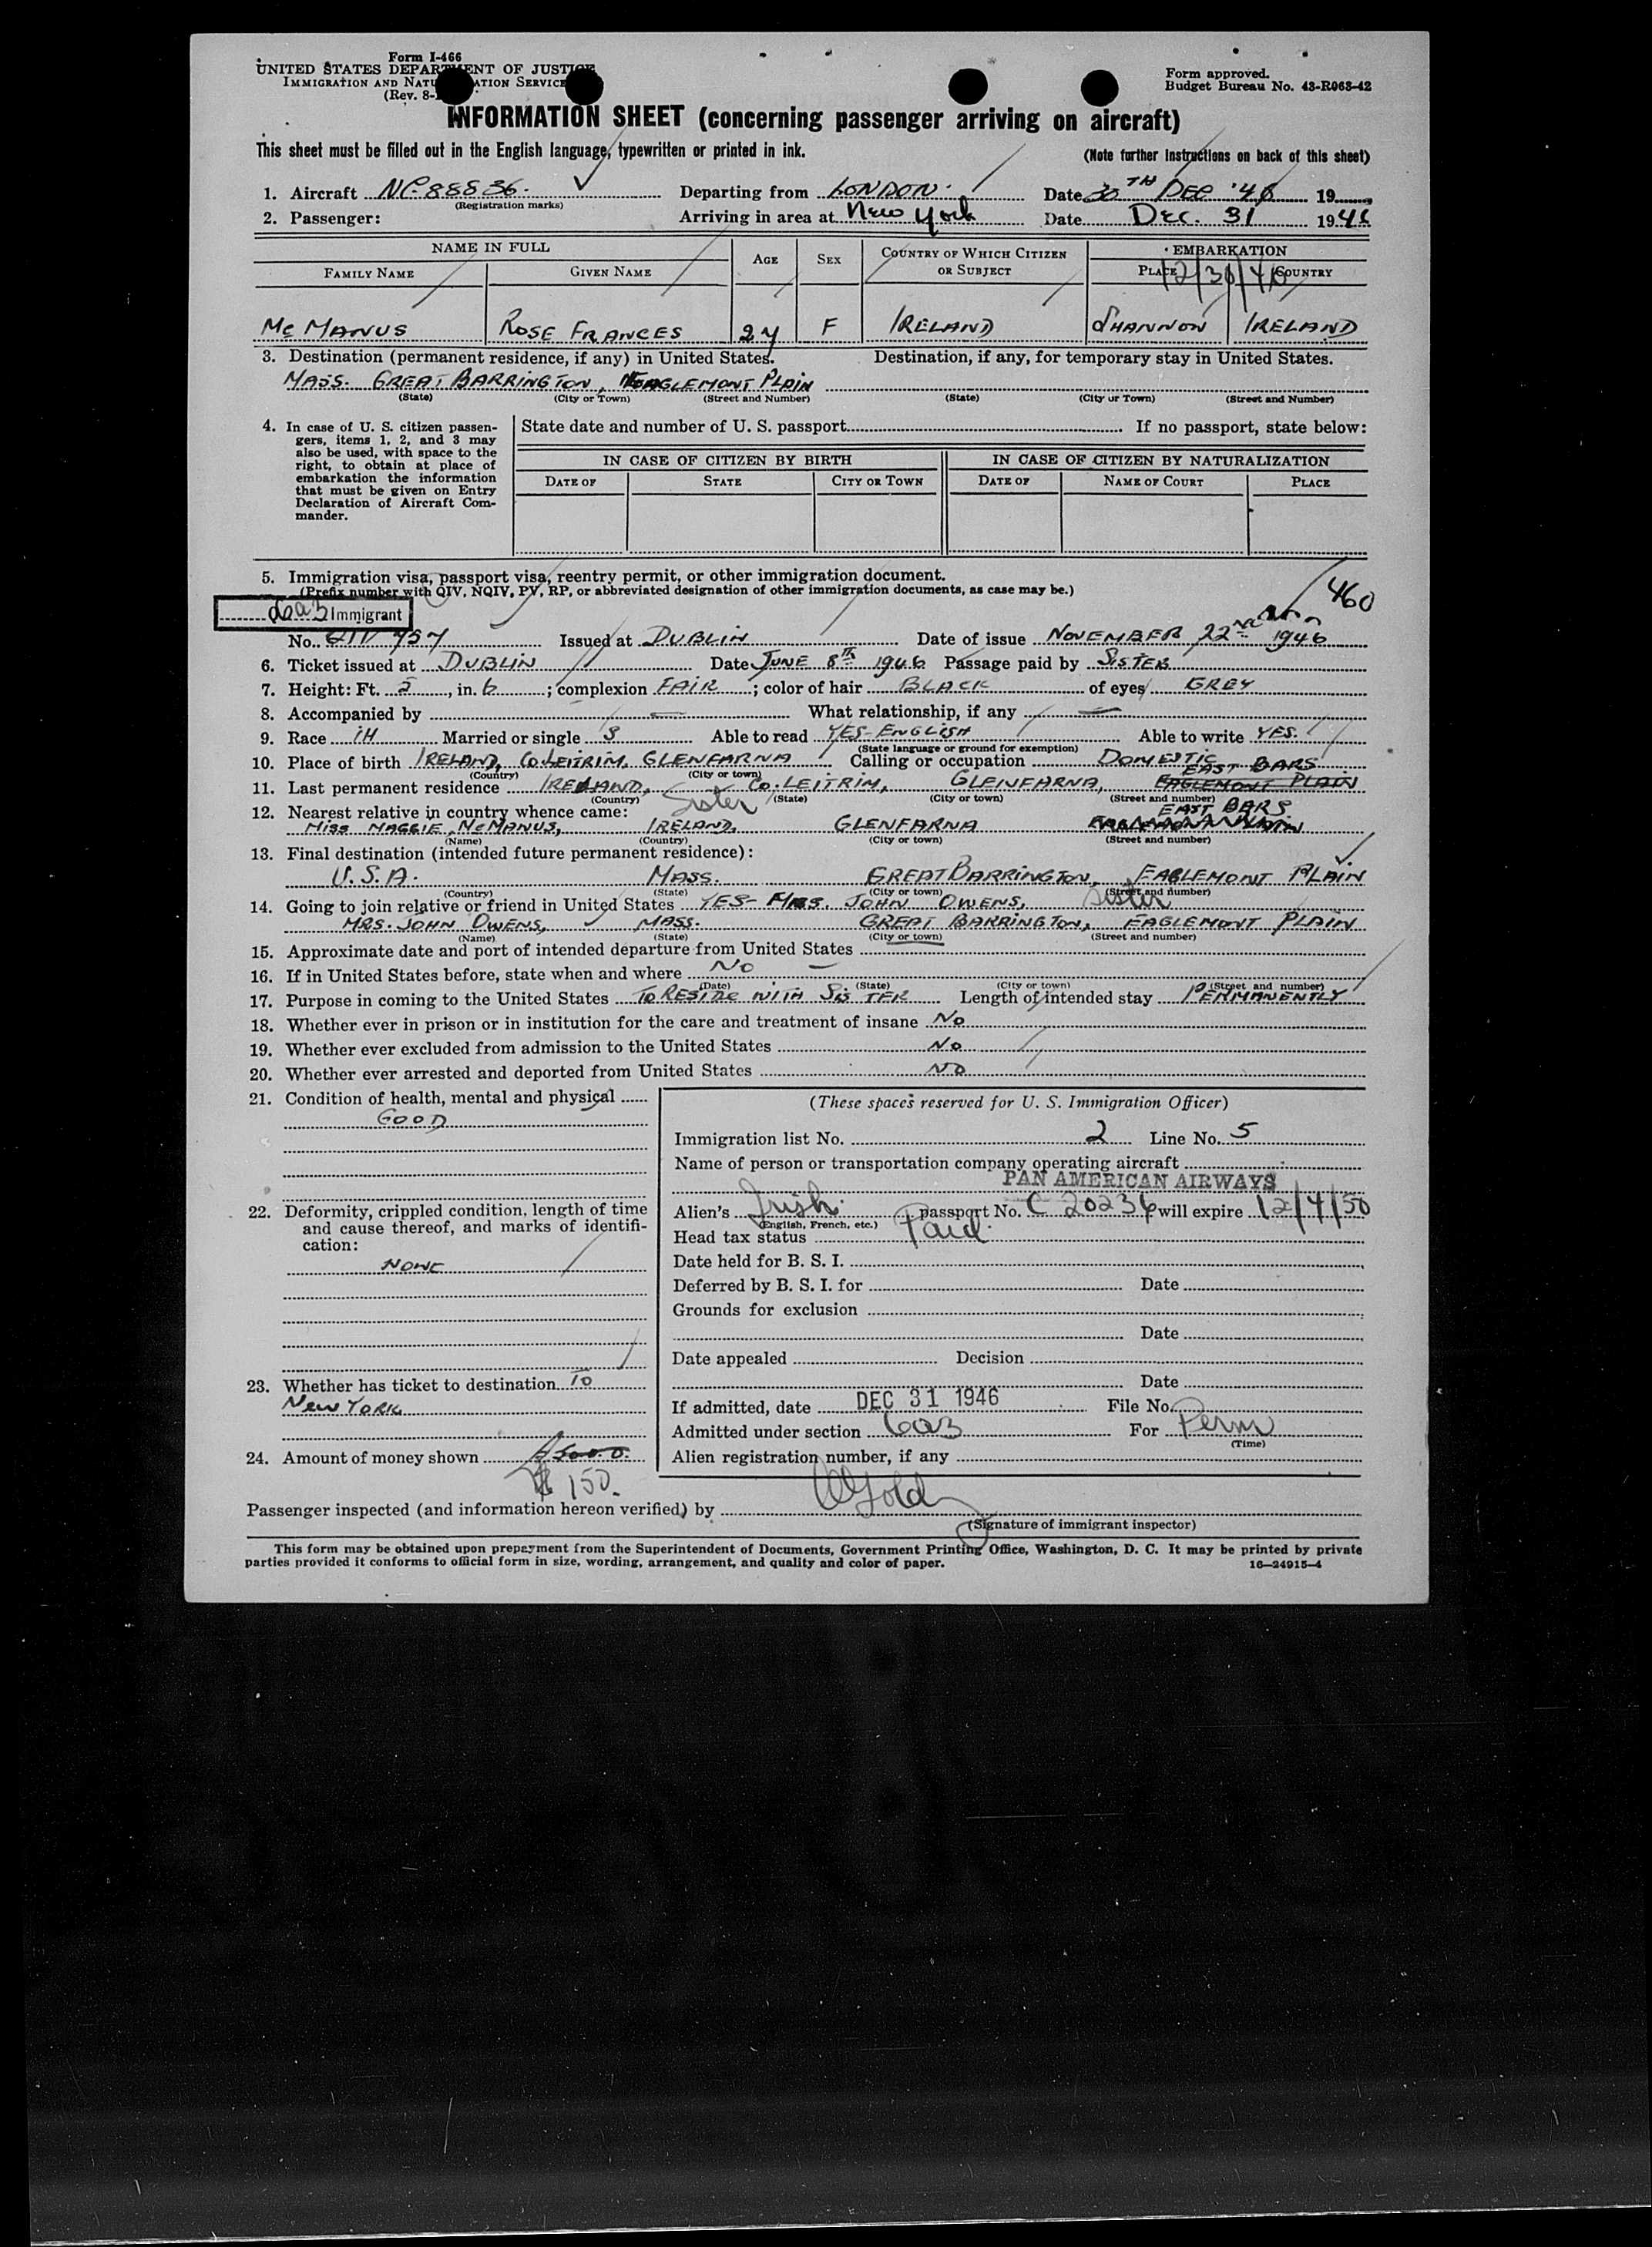 Form I-466
UNITED STATES DEPARTMENT OF JUSTICE
IMMIGRATION AND NATURALIZATION SERVICE
(Rev. 8-
Form approved.
Budget Bureau No. 43-R063-42
INFORMATION SHEET (concerning passenger arriving on aircraft)
This sheet must be filled out in the English language, typewritten or printed in ink. (Note further Instructions on back of this sheet)
1. Aircraft NC 88836. Departing from LONDON. Date 30TH DEC '46 19
(Registration marks)
2. Passenger: Arriving in area at New York Date Dec. 31 1946
NAME IN FULL AGE SEX COUNTRY OF WHICH CITIZEN OR SUBJECT EMBARKATION
FAMILY NAME GIVEN NAME PLACE COUNTRY
12/30/46
McMANUS ROSE FRANCES 27 F IRELAND SHANNON IRELAND
3. Destination (permanent residence, if any) in United States. Destination, if any, for temporary stay in United States.
MASS. GREAT BARRINGTON, EAGLEMONT PLAIN
(State) (City or Town) (Street and Number) (State) (City or Town) (Street and Number)
4. In case of U. S. citizen passengers, items 1, 2, and 3 may also be used, with space to the right, to obtain at place of embarkation the information that must be given on Entry Declaration of Aircraft Commander.
State date and number of U. S. passport If no passport, state below:
IN CASE OF CITIZEN BY BIRTH IN CASE OF CITIZEN BY NATURALIZATION
DATE OF STATE CITY OR TOWN DATE OF NAME OF COURT PLACE
5. Immigration visa, passport visa, reentry permit, or other immigration document.
(Prefix number with QIV, NQIV, PV, RP, or abbreviated designation of other immigration documents, as case may be.)
460
6a3 Immigrant
No. QIV 757 Issued at DUBLIN Date of issue NOVEMBER 22nd 1946
6. Ticket issued at DUBLIN Date JUNE 8th 1946 Passage paid by SISTER
7. Height: Ft. 5, in. 6; complexion FAIR; color of hair BLACK of eyes GREY
8. Accompanied by — What relationship, if any —
9. Race IH Married or single S Able to read YES-ENGLISH Able to write YES.
(State language or ground for exemption)
10. Place of birth IRELAND, Co. LEITRIM, GLENFARNA Calling or occupation DOMESTIC
(Country) (City or town) EAST BARS
11. Last permanent residence IRELAND, Co. LEITRIM, GLENFARNA, EAGLEMONT PLAIN
(Country) (State) (City or town) (Street and number)
Sister
12. Nearest relative in country whence came: EAST BARS.
MISS MAGGIE McMANUS, IRELAND, GLENFARNA
(Name) (Country) (City or town) (Street and number)
13. Final destination (intended future permanent residence):
U.S.A. MASS. GREAT BARRINGTON, EAGLEMONT PLAIN
(Country) (State) (City or town) (Street and number)
14. Going to join relative or friend in United States YES- MRS. JOHN OWENS, Sister
MRS. JOHN OWENS, MASS. GREAT BARRINGTON, EAGLEMONT PLAIN
(Name) (State) (City or town) (Street and number)
15. Approximate date and port of intended departure from United States
16. If in United States before, state when and where No —
(Date) (State) (City or town) (Street and number)
17. Purpose in coming to the United States TO RESIDE WITH SISTER Length of intended stay PERMANENTLY
18. Whether ever in prison or in institution for the care and treatment of insane No
19. Whether ever excluded from admission to the United States No
20. Whether ever arrested and deported from United States NO
21. Condition of health, mental and physical
GOOD
22. Deformity, crippled condition, length of time and cause thereof, and marks of identification:
NONE
23. Whether has ticket to destination TO
NEW YORK
24. Amount of money shown
$ 150.
(These spaces reserved for U. S. Immigration Officer)
Immigration list No. 2 Line No. 5
Name of person or transportation company operating aircraft
PAN AMERICAN AIRWAYS
Alien's Irish passport No. C 20236 will expire 12/4/50
(English, French, etc.)
Head tax status Paid
Date held for B. S. I.
Deferred by B. S. I. for Date
Grounds for exclusion
Date
Date appealed Decision
Date
If admitted, date DEC 31 1946 File No.
Admitted under section 6a3 For Perm
(Time)
Alien registration number, if any
Passenger inspected (and information hereon verified) by
(Signature of immigrant inspector)
This form may be obtained upon prepayment from the Superintendent of Documents, Government Printing Office, Washington, D. C. It may be printed by private
parties provided it conforms to official form in size, wording, arrangement, and quality and color of paper. 16—24915-4